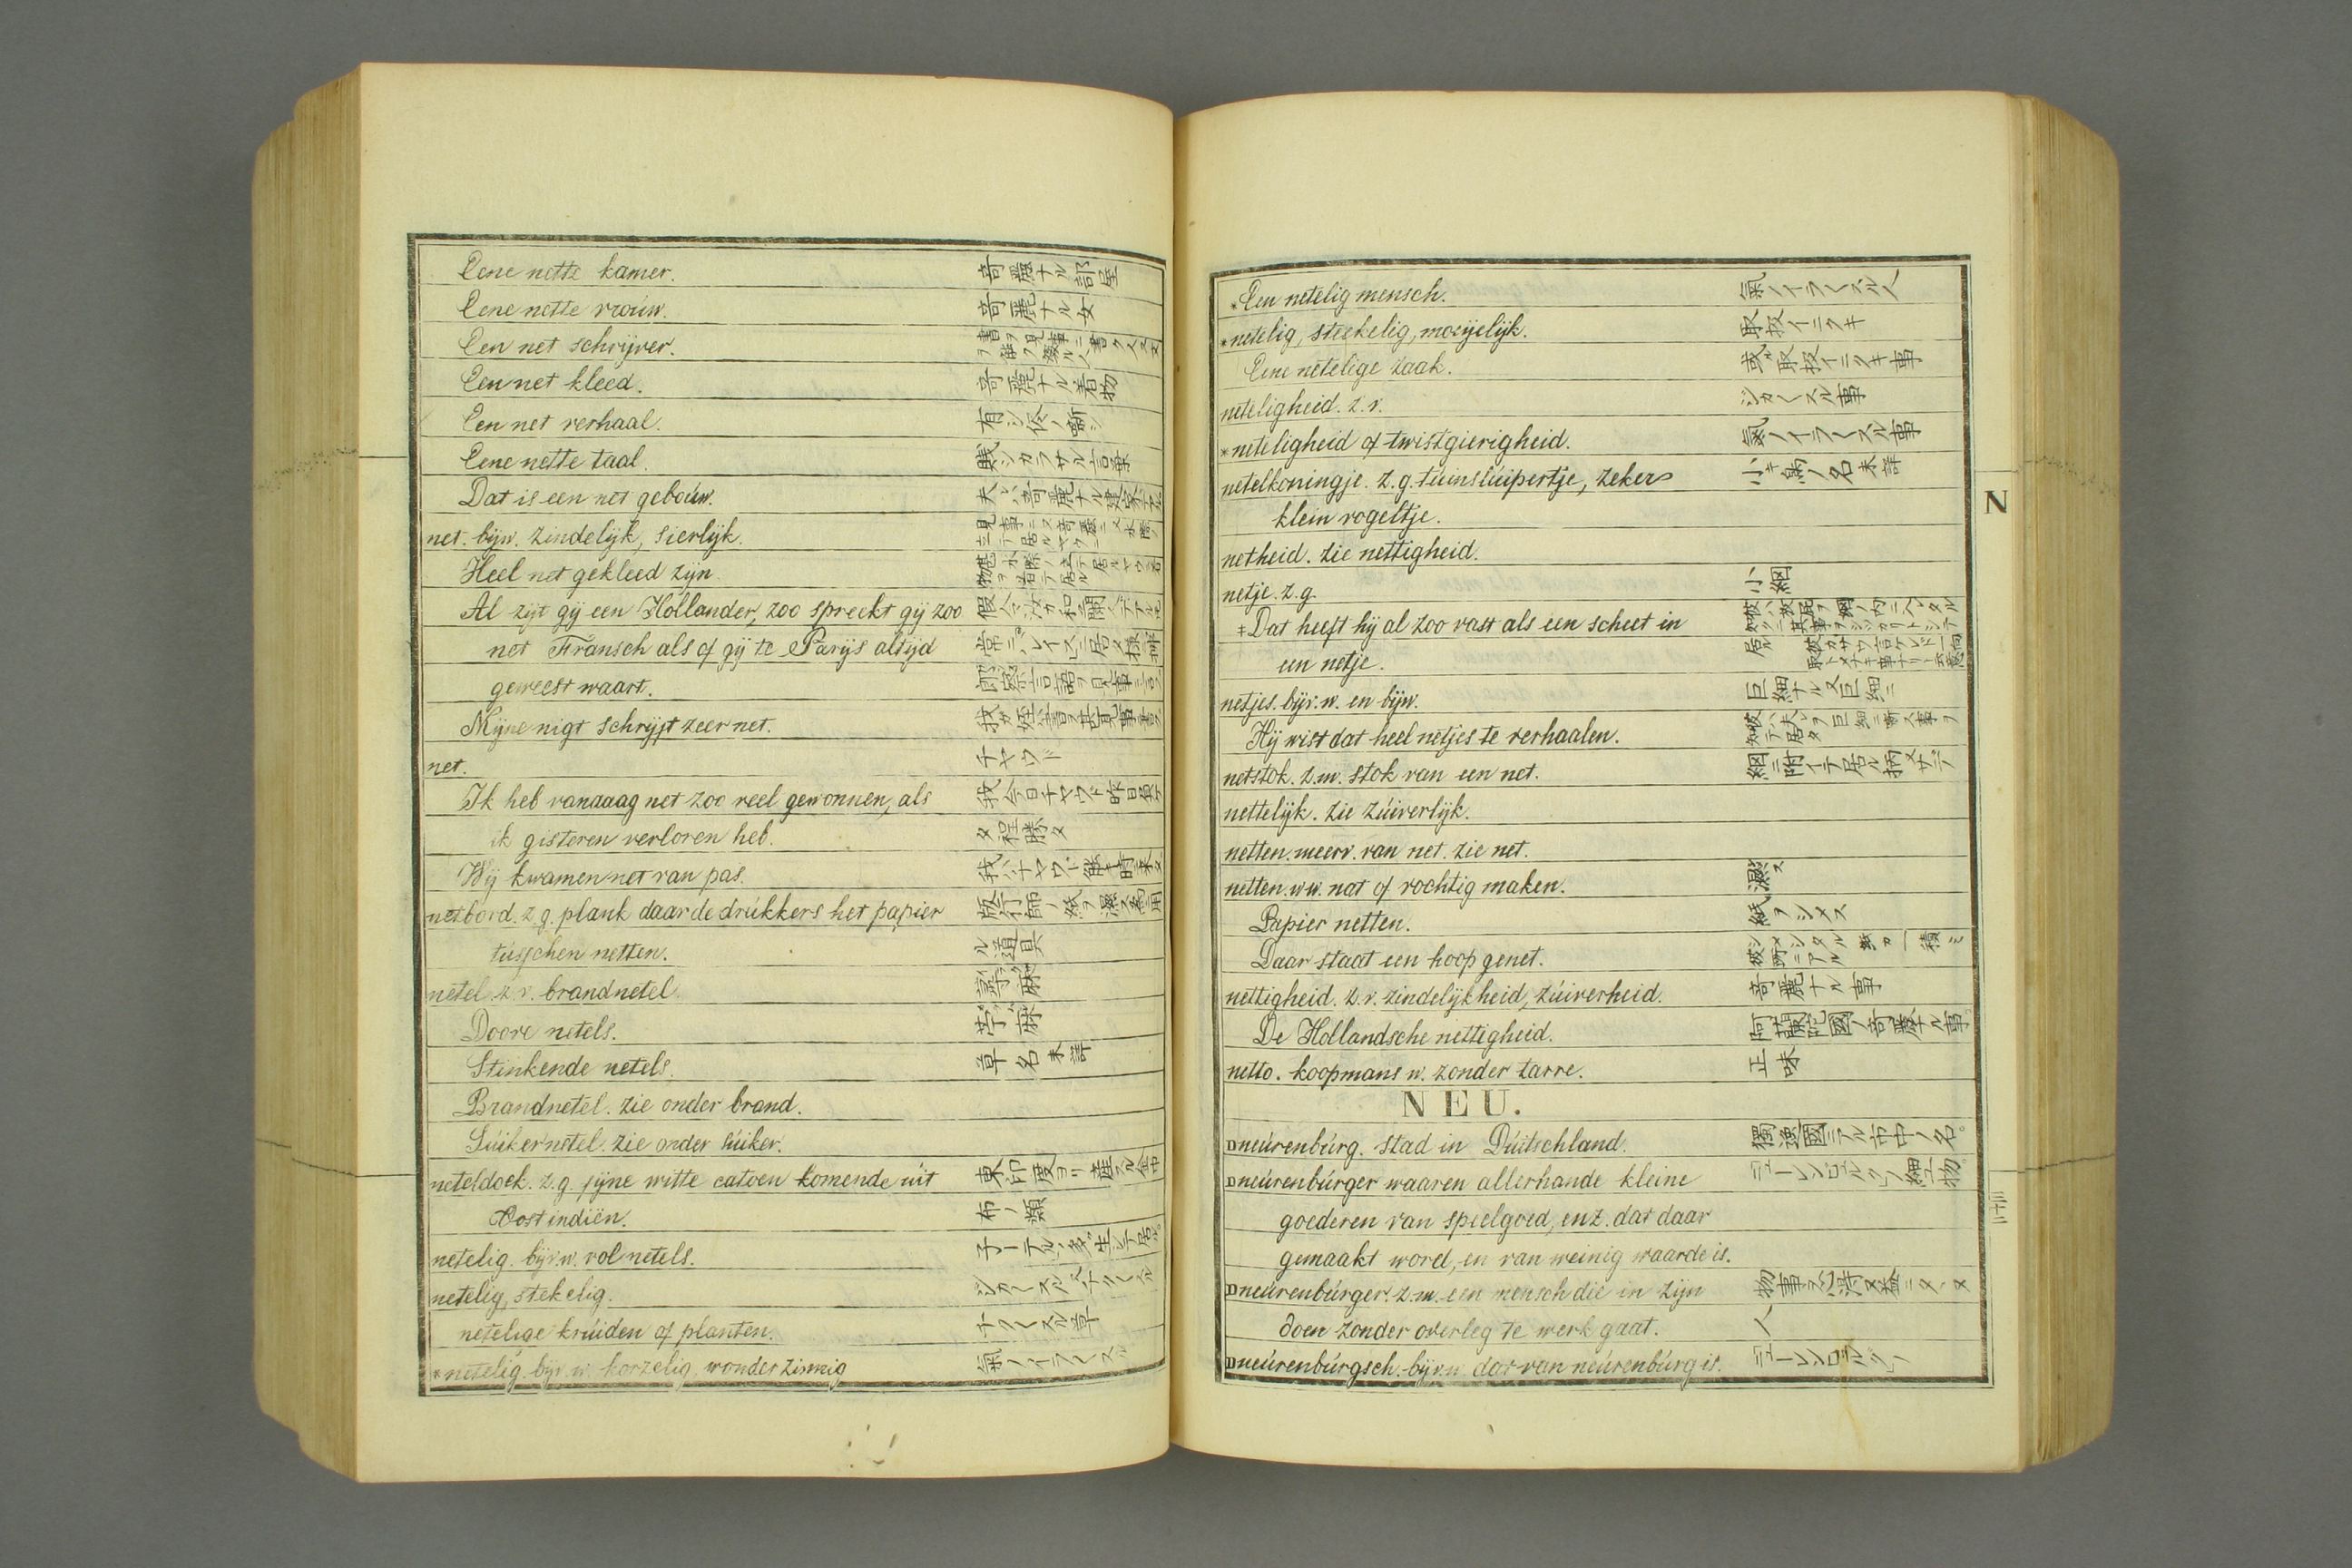 Eene nette kamer. 奇麗ナル部屋
Eene nette vroúw. 奇麗ナル女
Een net schrijver.
Een net kleed. 奇麗ナル着物
Een net verhaal.
Eene nette taal. 賎シカラサル言葉
Dat is een net geboúw.
net. bijw. zindelijk, sierlijk.
Heel net gekleed zijn.
Al zijt gij een Hollander, zoo spreekt gij zoo
net Fransch als of gij te Parijs altijd
geweest waart.
Mijne nigt schrijft zeer net.
net. チヤウド
Ik heb vandaag net zoo veel gewonnen, als
ik gisteren verloren heb. タ程勝タ
Wij kwamen net van pas.
netbord. z.g. plank daar de drúkkers het papier
tússchen netten. ル道具
netel. z.v. brandnetel. 蕁麻
Doove netels. 苧麻
Stinkende netels. 草名未詳
Brandnetel. zie onder brand.
Súikernetel. zie onder súiker.
neteldoek. z.g. fijne witte catoen komende úit
Oost indiën. 布ノ類
netelig. bijv.w. vol netels.
netelig, stekelig.
netelige krúiden of planten. チクくスル草
*netelig. bijv.w. korzelig, wonderzinnig 氣ノイラくスル
*Een netelig mensch. 氣ノイラくスル人
*netelig, steekelig, moeijelijk. 取扱イニクキ
Eene netelige zaak. 或取扱イニクキ事
neteligheid. z.v. シカくスル事
*neteligheid of twistgierigheid. 氣ノイラくスル事
netelkoningje. z.g. túinslúipertje, zeker 小キ鳥ノ名未詳
klein vogeltje.
netheid. zie nettigheid.
netje. z.g. 小網
‡Dat heeft hij al zoo vast als een scheet in
een netje.
netjes. bijv.w. en bijw. 巨細ナル又巨細ニ
Hij wist dat heel netjes te verhaalen.
netstok. z.m. stok van een net.
nettelijk. zie zúiverlijk.
netten. meerv. van net. zie net.
netten. ww. nat of vochtig maken. 濕ス
Papier netten. 紙ヲシメス
Daar staat een hoop genet.
nettigheid. z.v. zindelijkheid, zúiverheid. 奇麗ナル事
De Hollandsche nettigheid. 阿蘭陀國ノ奇麗ナル事
netto. koopmans w. zonder tarre. 正味
NEU.
neúrenbúrg. stad in Dúitschland.
neúrenbúrger waaren allerhande kleine
goederen van speelgoed, enz. dat daar
gemaakt word, en van weinig waarde is.
neúrenbúrger. z.m. een mensch die in zijn
doen zonder overleg te werk gaat. 人
neúrenbúrgsch. bijv.w. dat van neúrenbúrg is.
N